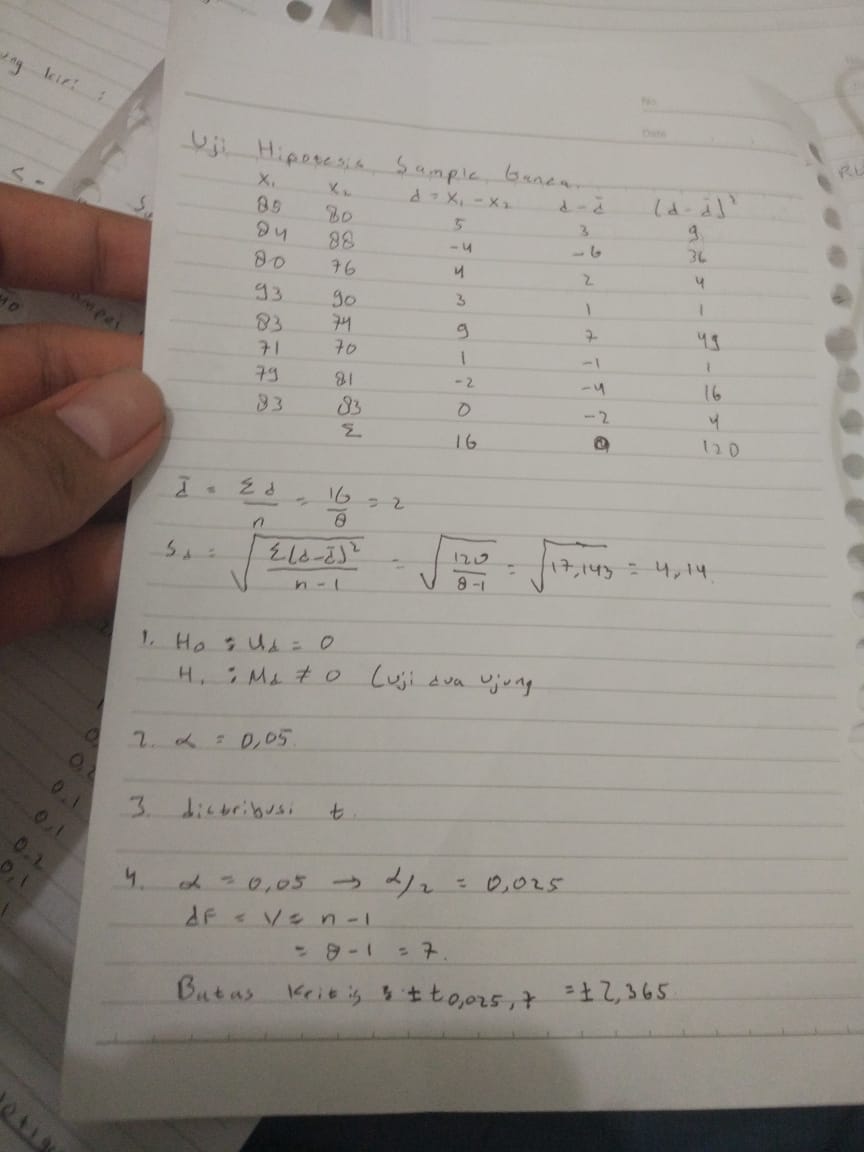 No.
Date
Uji Hipotesis Sample Ganda.
X₁ X₂ d = X₁ - X₂ d - d̄ (d - d̄)²
85 80 5 3 9
84 88 -4 -6 36
80 76 4 2 4
93 90 3 1 1
83 74 9 7 49
71 70 1 -1 1
79 81 -2 -4 16
83 83 0 -2 4
Σ 16 0 120
d̄ = Σd/n = 16/8 = 2
Sd = √(Σ(d-d̄)²/n-1) = √(120/8-1) = √17,143 = 4,14.
1. H₀ : Ud = 0
H₁ : Md ≠ 0 (Uji dua Ujung
2. α = 0,05.
3. distribusi t.
4. α = 0,05 → α/2 = 0,025
dF = V = n - 1
= 8 - 1 = 7.
Batas kritis : ± t0,025, 7 = ± 2,365.